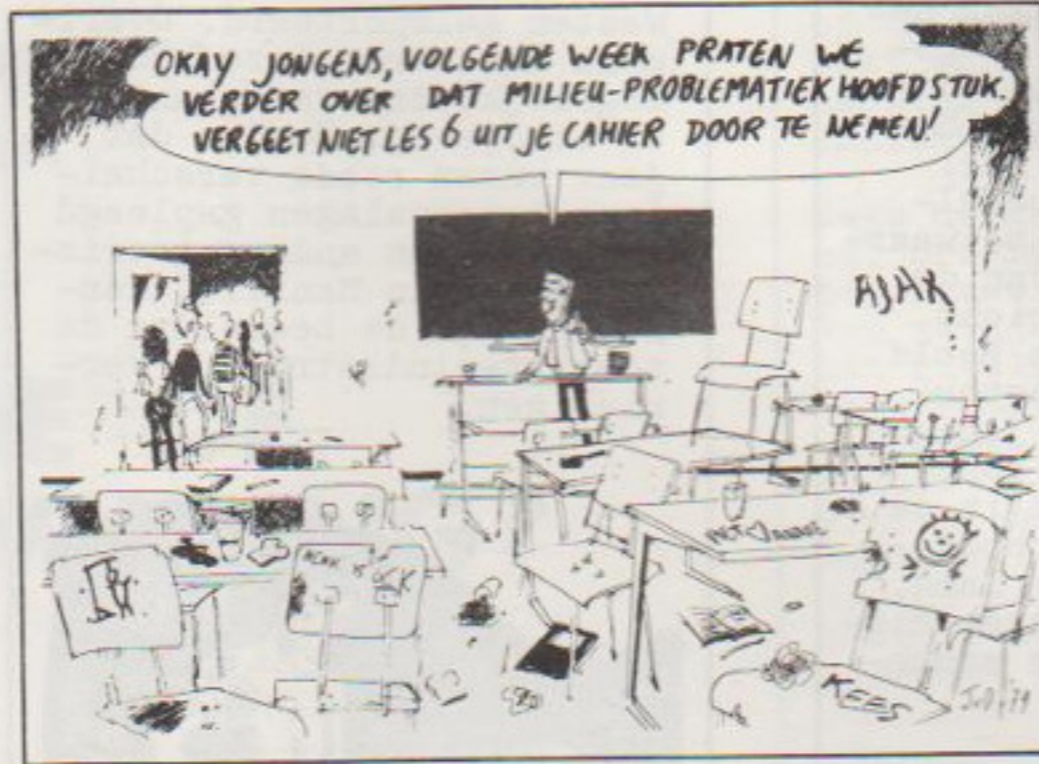 OKAY JONGENS, VOLGENDE WEEK PRATEN WE
VERDER OVER DAT MILIEU-PROBLEMATIEK HOOFDSTUK.
VERGEET NIET LES 6 UIT JE CAHIER DOOR TE NEMEN!
AJAX
KEES